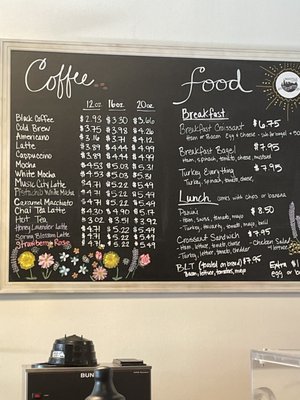 Coffee
12 oz 16 oz 20 oz
Black Coffee $2.93 $3.30 $3.66
Cold Brew $3.75 $3.98 $4.26
Americano $3.16 $3.71 $4.12
Latte $3.89 $4.44 $4.99
Cappuccino $3.89 $4.44 $4.99
Mocha $4.53 $5.03 $5.31
White Mocha $4.53 $5.03 $5.31
Music City Latte $4.71 $5.22 $5.49
White Mocha $4.71 $5.22 $5.49
Caramel Macchiato $4.71 $5.22 $5.49
Chai Tea Latte $4.20 $4.90 $5.17
Hot Tea $3.02 $3.51 $3.92
Honey Lavender Latte $4.71 $5.22 $5.49
Spring Blossom Latte $4.71 $5.22 $5.49
Strawberry Rose $4.71 $5.22 $5.49
food
Breakfast
Breakfast Croissant $6.75
Ham or Bacon, Egg & Cheese
Breakfast Bagel $7.95
Ham, spinach, tomato, cheese, mustard
Turkey Everything $7.95
Turkey, spinach, tomato, cheese
Lunch (comes with chips or banana)
Panini $8.50
- Ham, swiss, tomato, mayo
- Turkey,
Croissant Sandwich $7.95
- Ham, lettuce, tomato, cheese
- Chicken Salad
- Turkey, lettuce, tomato, cheddar
BLT (toasted on bread) $7.95
Bacon, lettuce, tomatoes, mayo
Extra
egg or
BUN